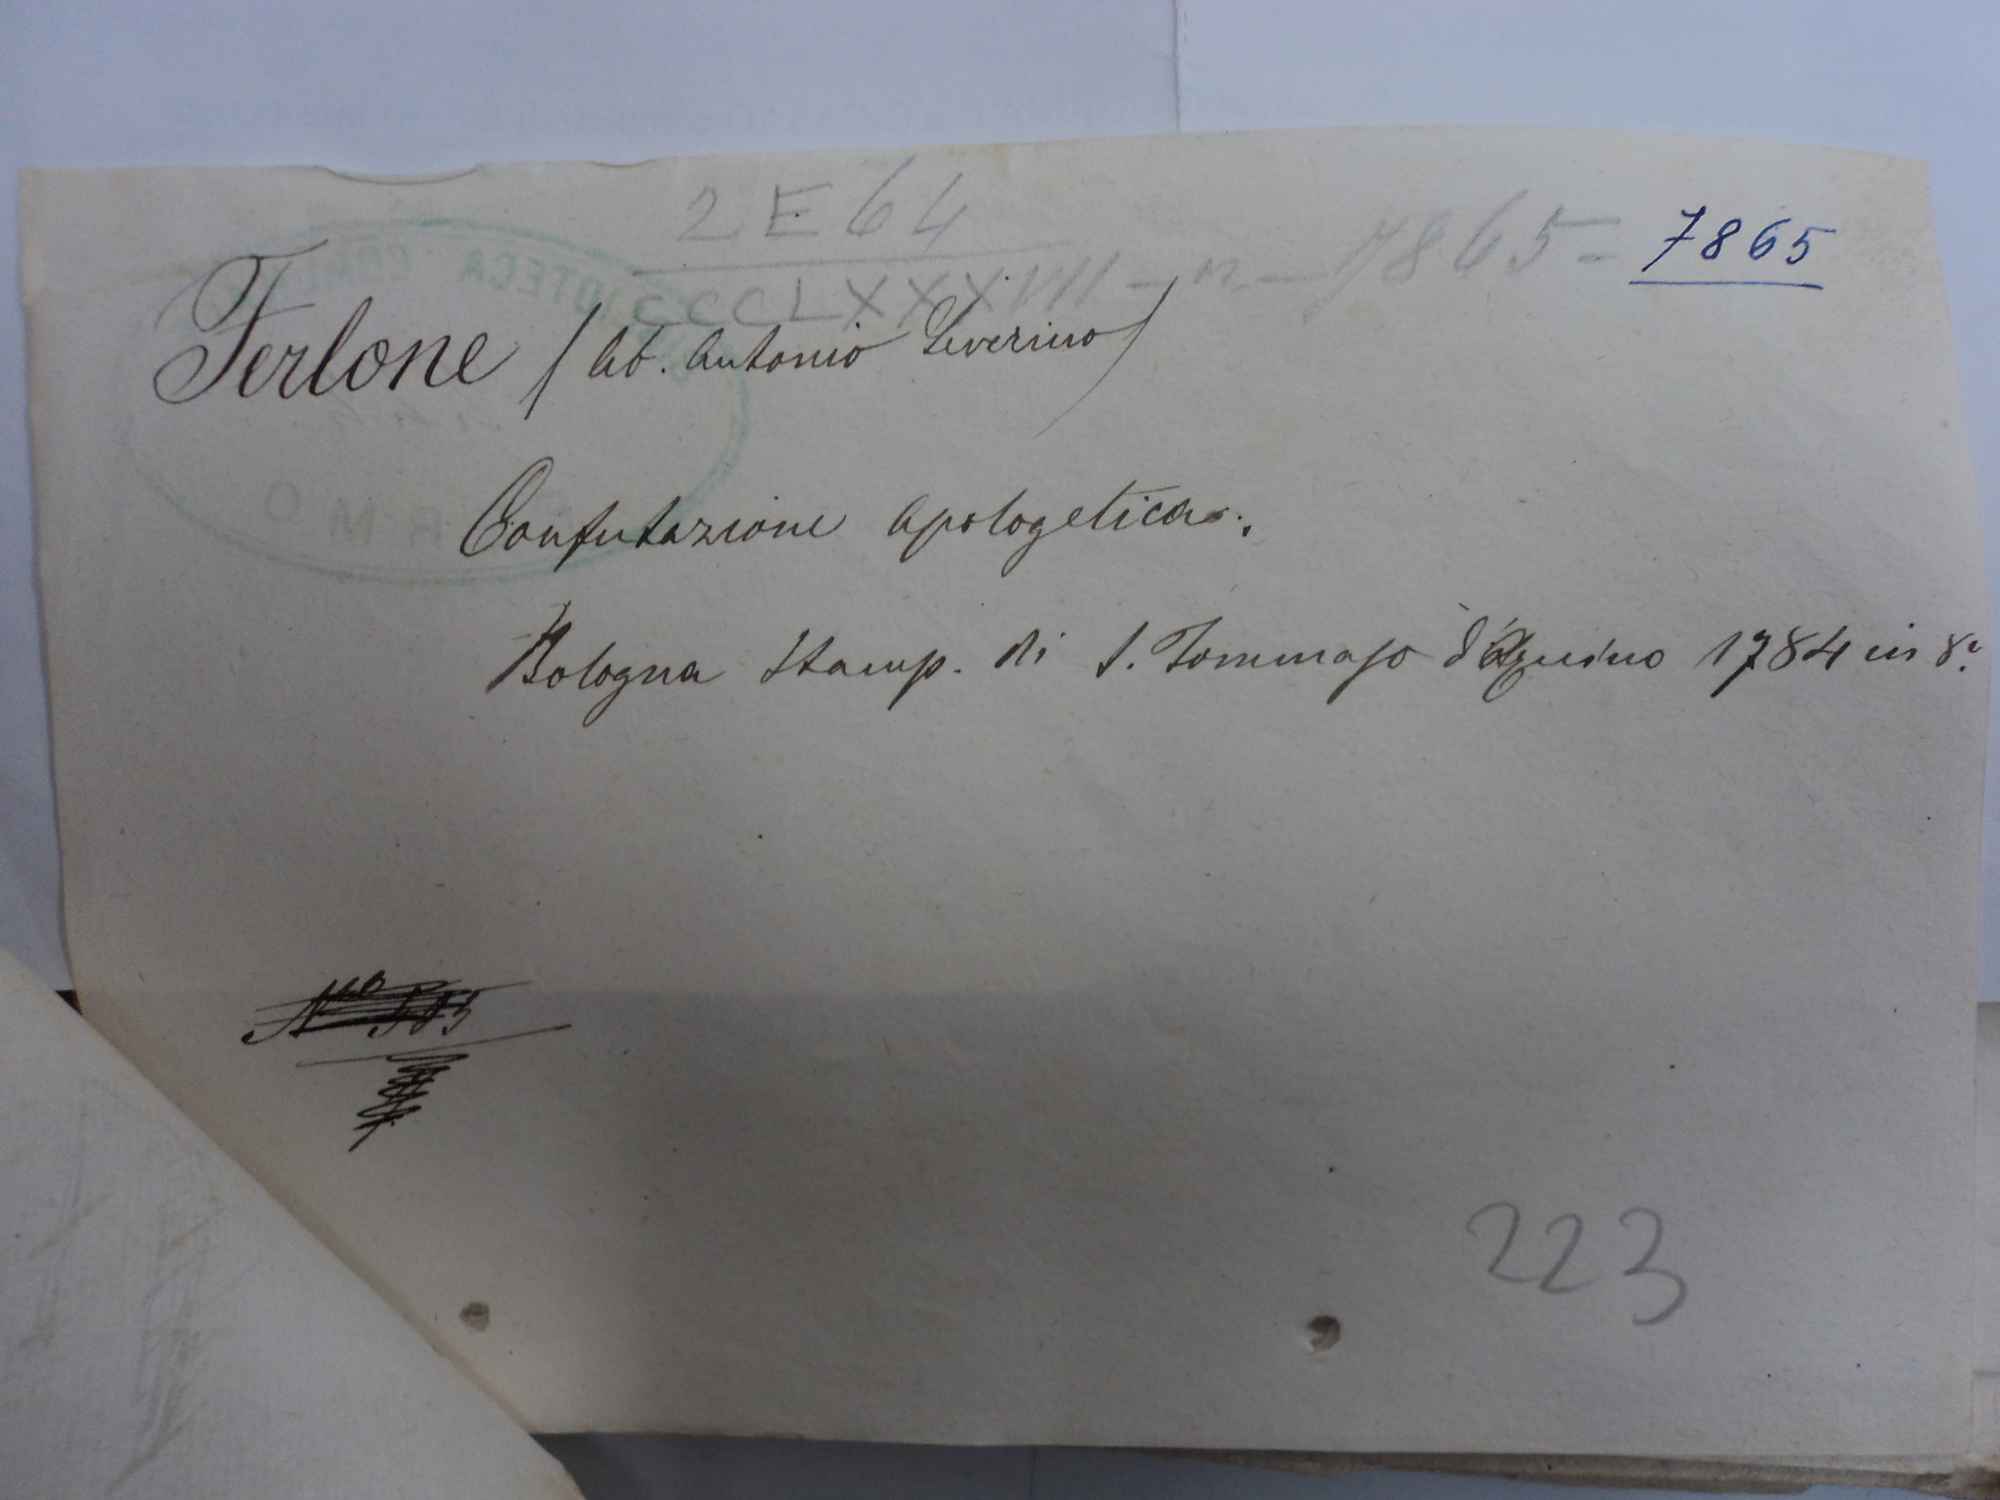 2 E 64
CCCLXXXVIII - n - 7865 = 7865
Ferlone (Ab. Antonio Severino)
Confutazione apologetica.
Bologna Stamp. di S. Tommaso d'Aquino 1784 in 8.°
223